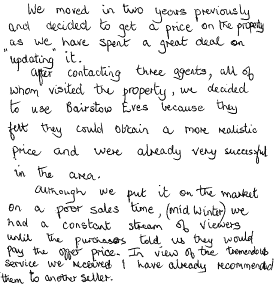 We moved in two years previously
and decided to get a price on the property
as we have spent a great deal on
"updating" it.
After contacting three agents, all of
whom visited the property, we decided
to use Bairstow Eves because they
felt they could obtain a more realistic
price and were already very successful
in the area.
Although we put it on the market
on a poor sales time, (mid Winter) we
had a constant stream of viewers
until the purchasers told us they would
pay the offer price. In view of the tremendous
service we received I have already recommended
them to another seller.